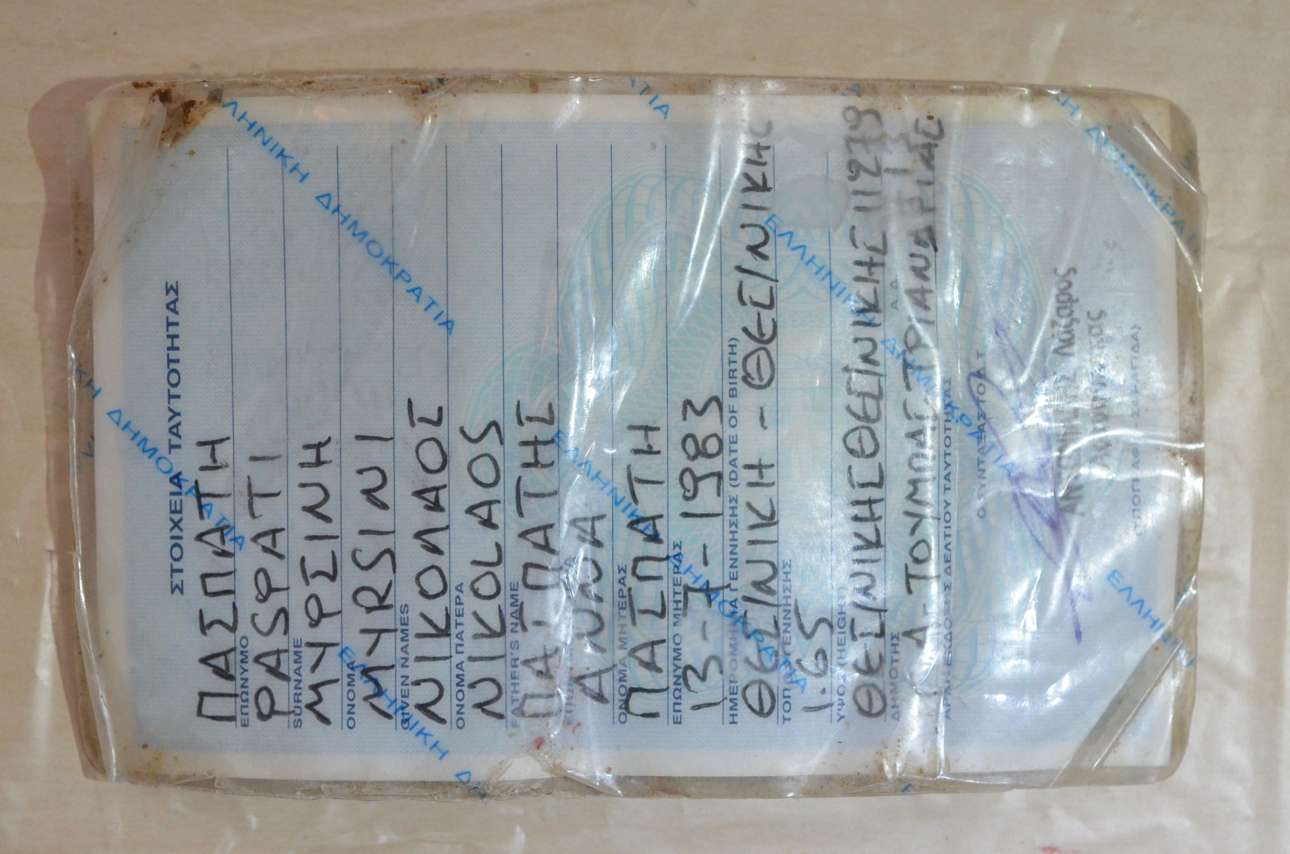 ΣΤΟΙΧΕΙΑ ΤΑΥΤΟΤΗΤΑΣ
ΠΑΣΠΑΤΗ
ΕΠΩΝΥΜΟ
PASPATI
SURNAME
ΜΥΡΣΙΝΗ
ΟΝΟΜΑ
MYRSINI
GIVEN NAMES
ΝΙΚΟΛΑΟΣ
ΟΝΟΜΑ ΠΑΤΕΡΑ
NIKOLAOS
FATHER'S NAME
ΠΑΣΠΑΤΗΣ
ΑΝΝΑ
ΟΝΟΜΑ ΜΗΤΕΡΑΣ
ΠΑΣΠΑΤΗ
ΕΠΩΝΥΜΟ ΜΗΤΕΡΑΣ
13-7-1983
ΗΜΕΡΟΜΗΝΙΑ ΓΕΝΝΗΣΗΣ (DATE OF BIRTH)
ΘΕΣ/ΝΙΚΗ - ΘΕΣ/ΝΙΚΗΣ
ΤΟΠΟΣ ΓΕΝΝΗΣΗΣ
1.65
ΥΨΟΣ (HEIGHT)
ΘΕΣ/ΝΙΚΗΣ ΘΕΣ/ΝΙΚΗΣ 11279
ΔΗΜΟΤΗΣ
Τ.Α. ΤΟΥΜΠΑΣ ΤΡΙΑΝΔΡΙΑΣ
ΑΡΧΗ ΕΚΔΟΣΗΣ ΔΕΛΤΙΟΥ ΤΑΥΤΟΤΗΤΑΣ
Ο ΣΥΝΤΑΞΑΣ ΤΟ Δ.Τ
Λάζαρος
ΕΛΛΗΝΙΚΗ ΔΗΜΟΚΡΑΤΙΑ